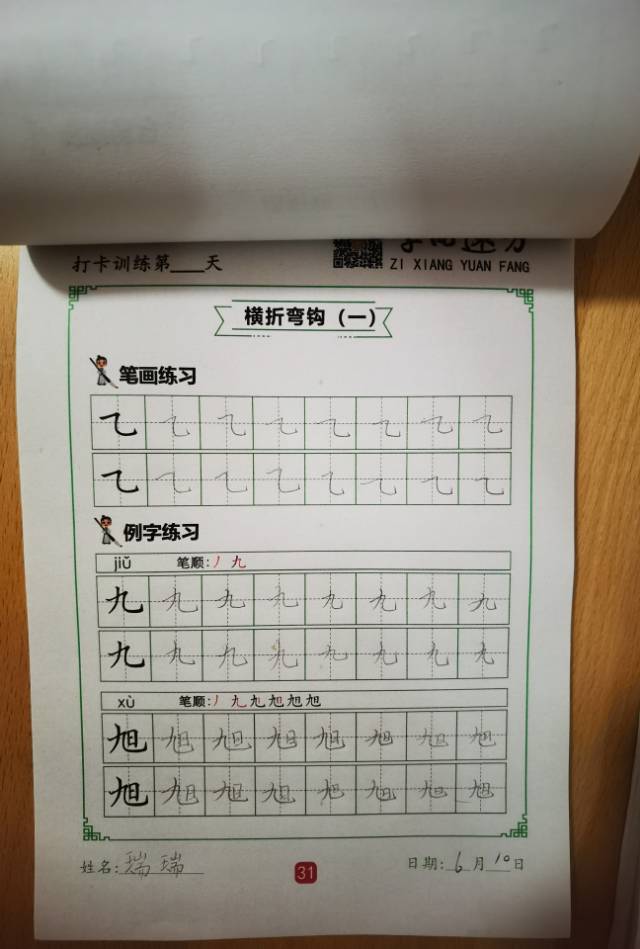 打卡训练第____天
ZI XIANG YUAN FANG
横折弯钩（一）
笔画练习
例字练习
jiǔ 笔顺:丿 九
九 九 九 九 九 九 九 九
九 九 九 九 九 九 九 九
xù 笔顺:丿 九 九 旭 旭 旭
旭 旭 旭 旭 旭 旭 旭 旭
旭 旭 旭 旭 旭 旭 旭 旭
姓名:瑞瑞 31 日期:6月10日